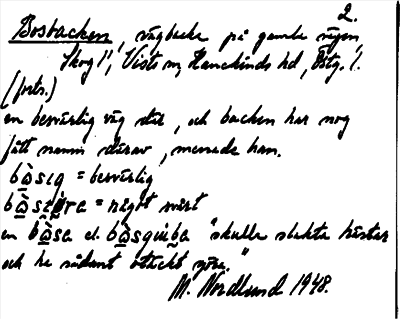 2.
Bosbacken, vägbacke på gamla vägen,
Skog 1¹, Vists sn, Hanekinds hd, Östg. l.
(forts.)
en besvärlig väg där, och backen har nog
fått namn därav, menade han.
bò̱sıg = besvärlig
= något svårt
en bò̱sa el. "skulle slakta hästar
och he sådant otäckt göra."
M. Nordlund 1948.